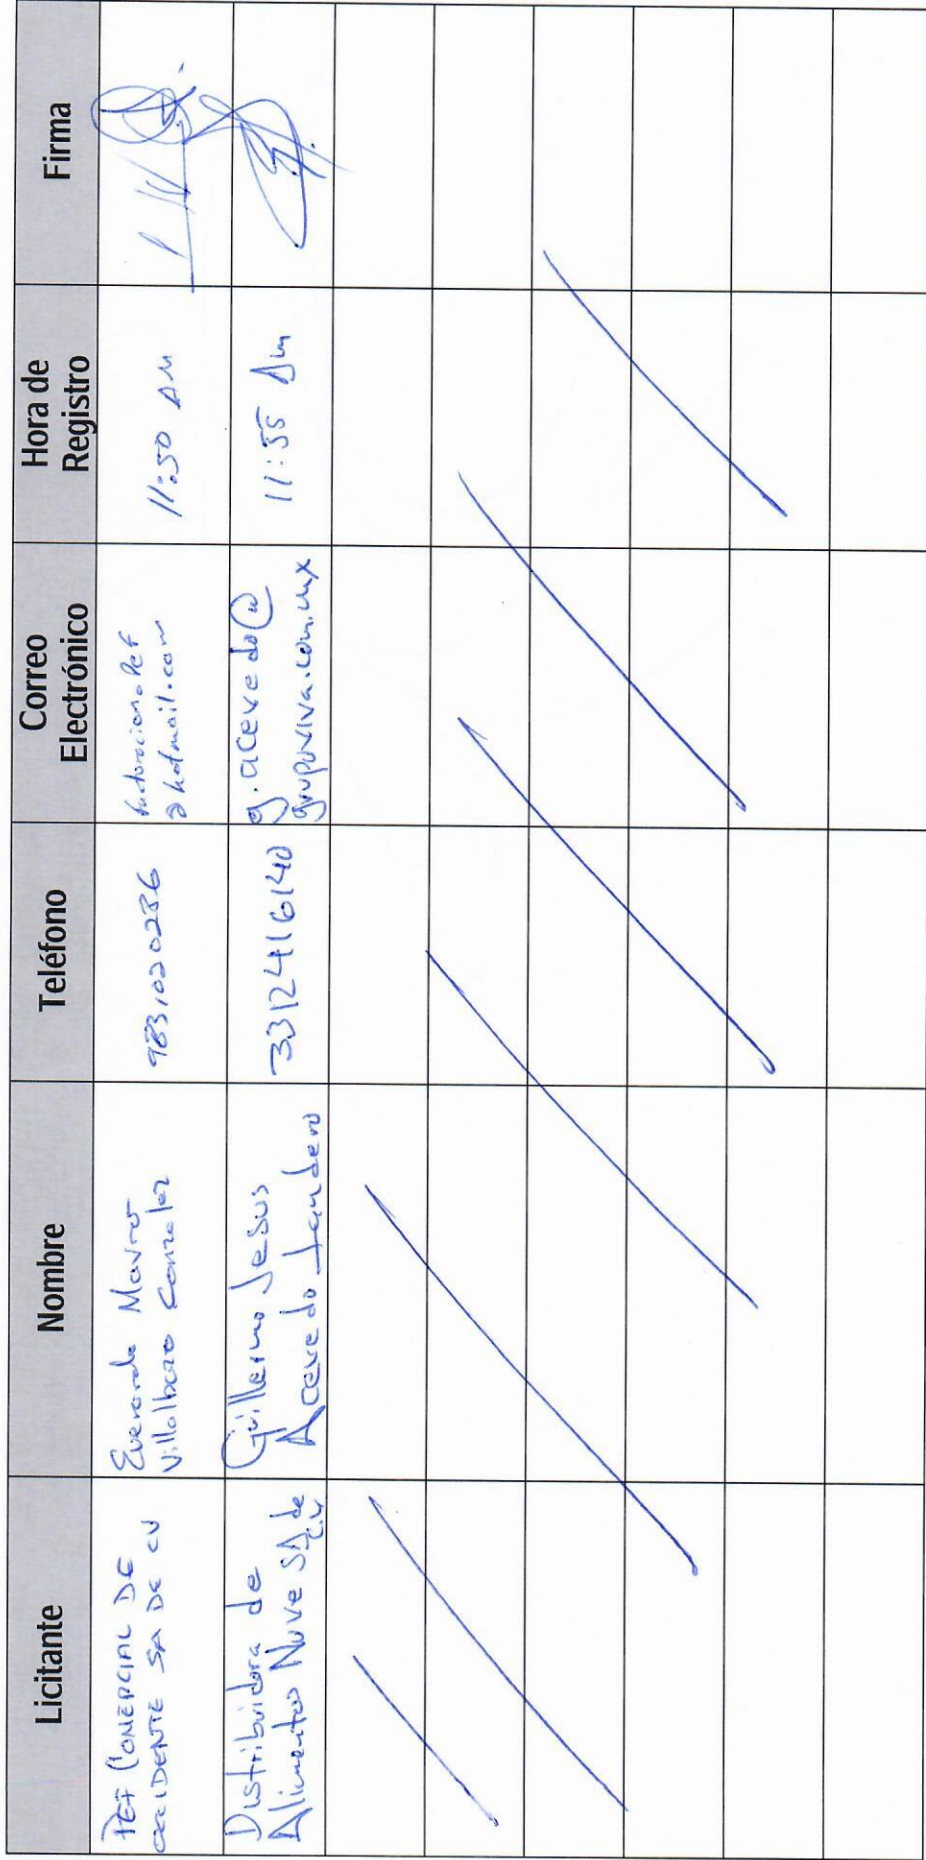 Licitante
Nombre
Teléfono
Correo
Electrónico
Hora de
Registro
Firma
PEF COMERCIAL DE
OCCIDENTE SA DE CV
Everardo Mauro
Villalbazo Gonzalez
9831020286
@hotmail.com
11:50 AM
Distribuidora de
Alimentos Nuve SA de
C.V
Guillermo Jesus
Acevedo Landero
3312416140
g.acevedo@
grupoviva.com.mx
11:55 Am